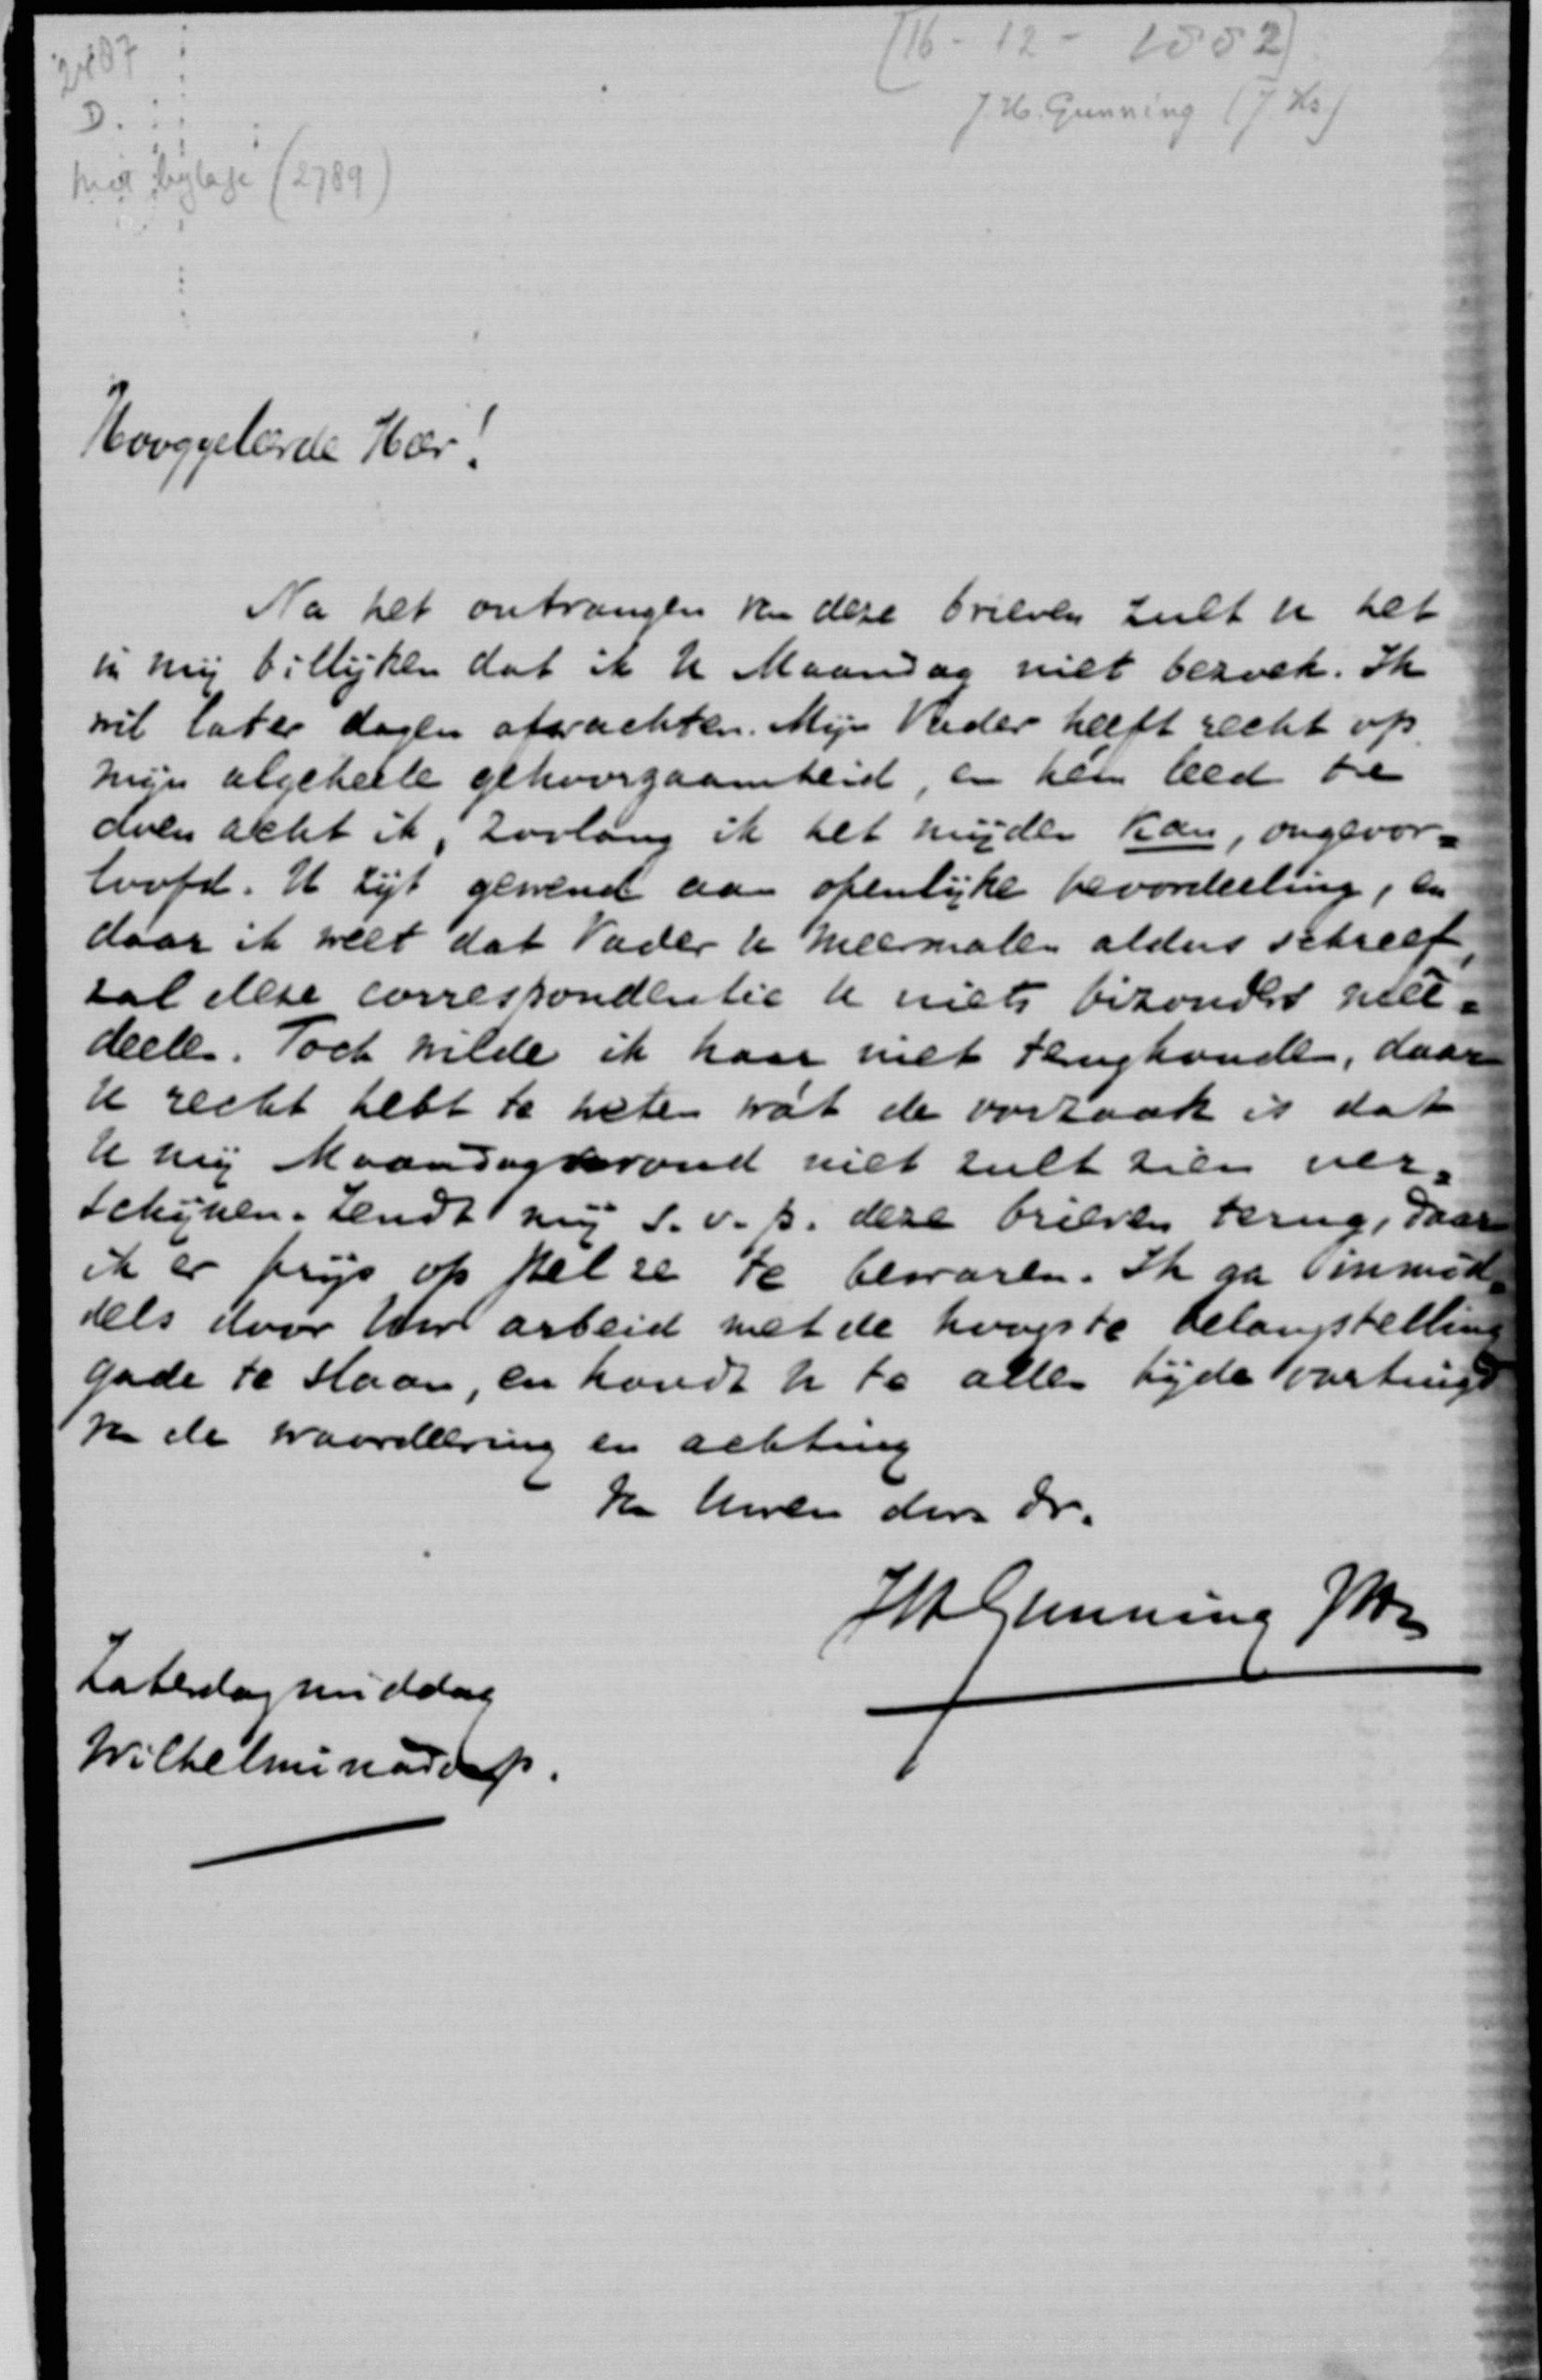 2787
D.
met bijlage (2789)
[16-12-1882]
J.H. Gunning (J Hz)
Hooggeleerde Heer!
Na het ontvangen van deze brieven zult U het
in mij billijken dat ik U Maandag niet bezoek. Ik
wil later dagen afwachten. Mijn Vader heeft recht op
mijn algeheele gehoorzaamheid, en hem leed te
doen acht ik, zoolang ik het mijden kan, ongeoor=
loofd. U zijt gewend aan openlijke beoordeeling, en
daar ik weet dat Vader U meermalen aldus schreef,
zal deze correspondentie U niets bizonders mee=
deelen. Toch wilde ik haar niet terughouden, daar
U recht hebt te weten wát de oorzaak is dat
U mij Maandagavond niet zult zien ver=
schijnen. Zendt mij s.v.p. deze brieven terug, daar
ik er prijs op stel ze te bewaren. Ik ga inmid=
dels door Uw arbeid met de hoogste belangstelling
gade te slaan, en houdt U te allen tijde overtuigd
van de waardeering en achting
van Uwen dw. dr.
JHGunning JHz
Zaterdagmiddag
Wilhelminadorp.